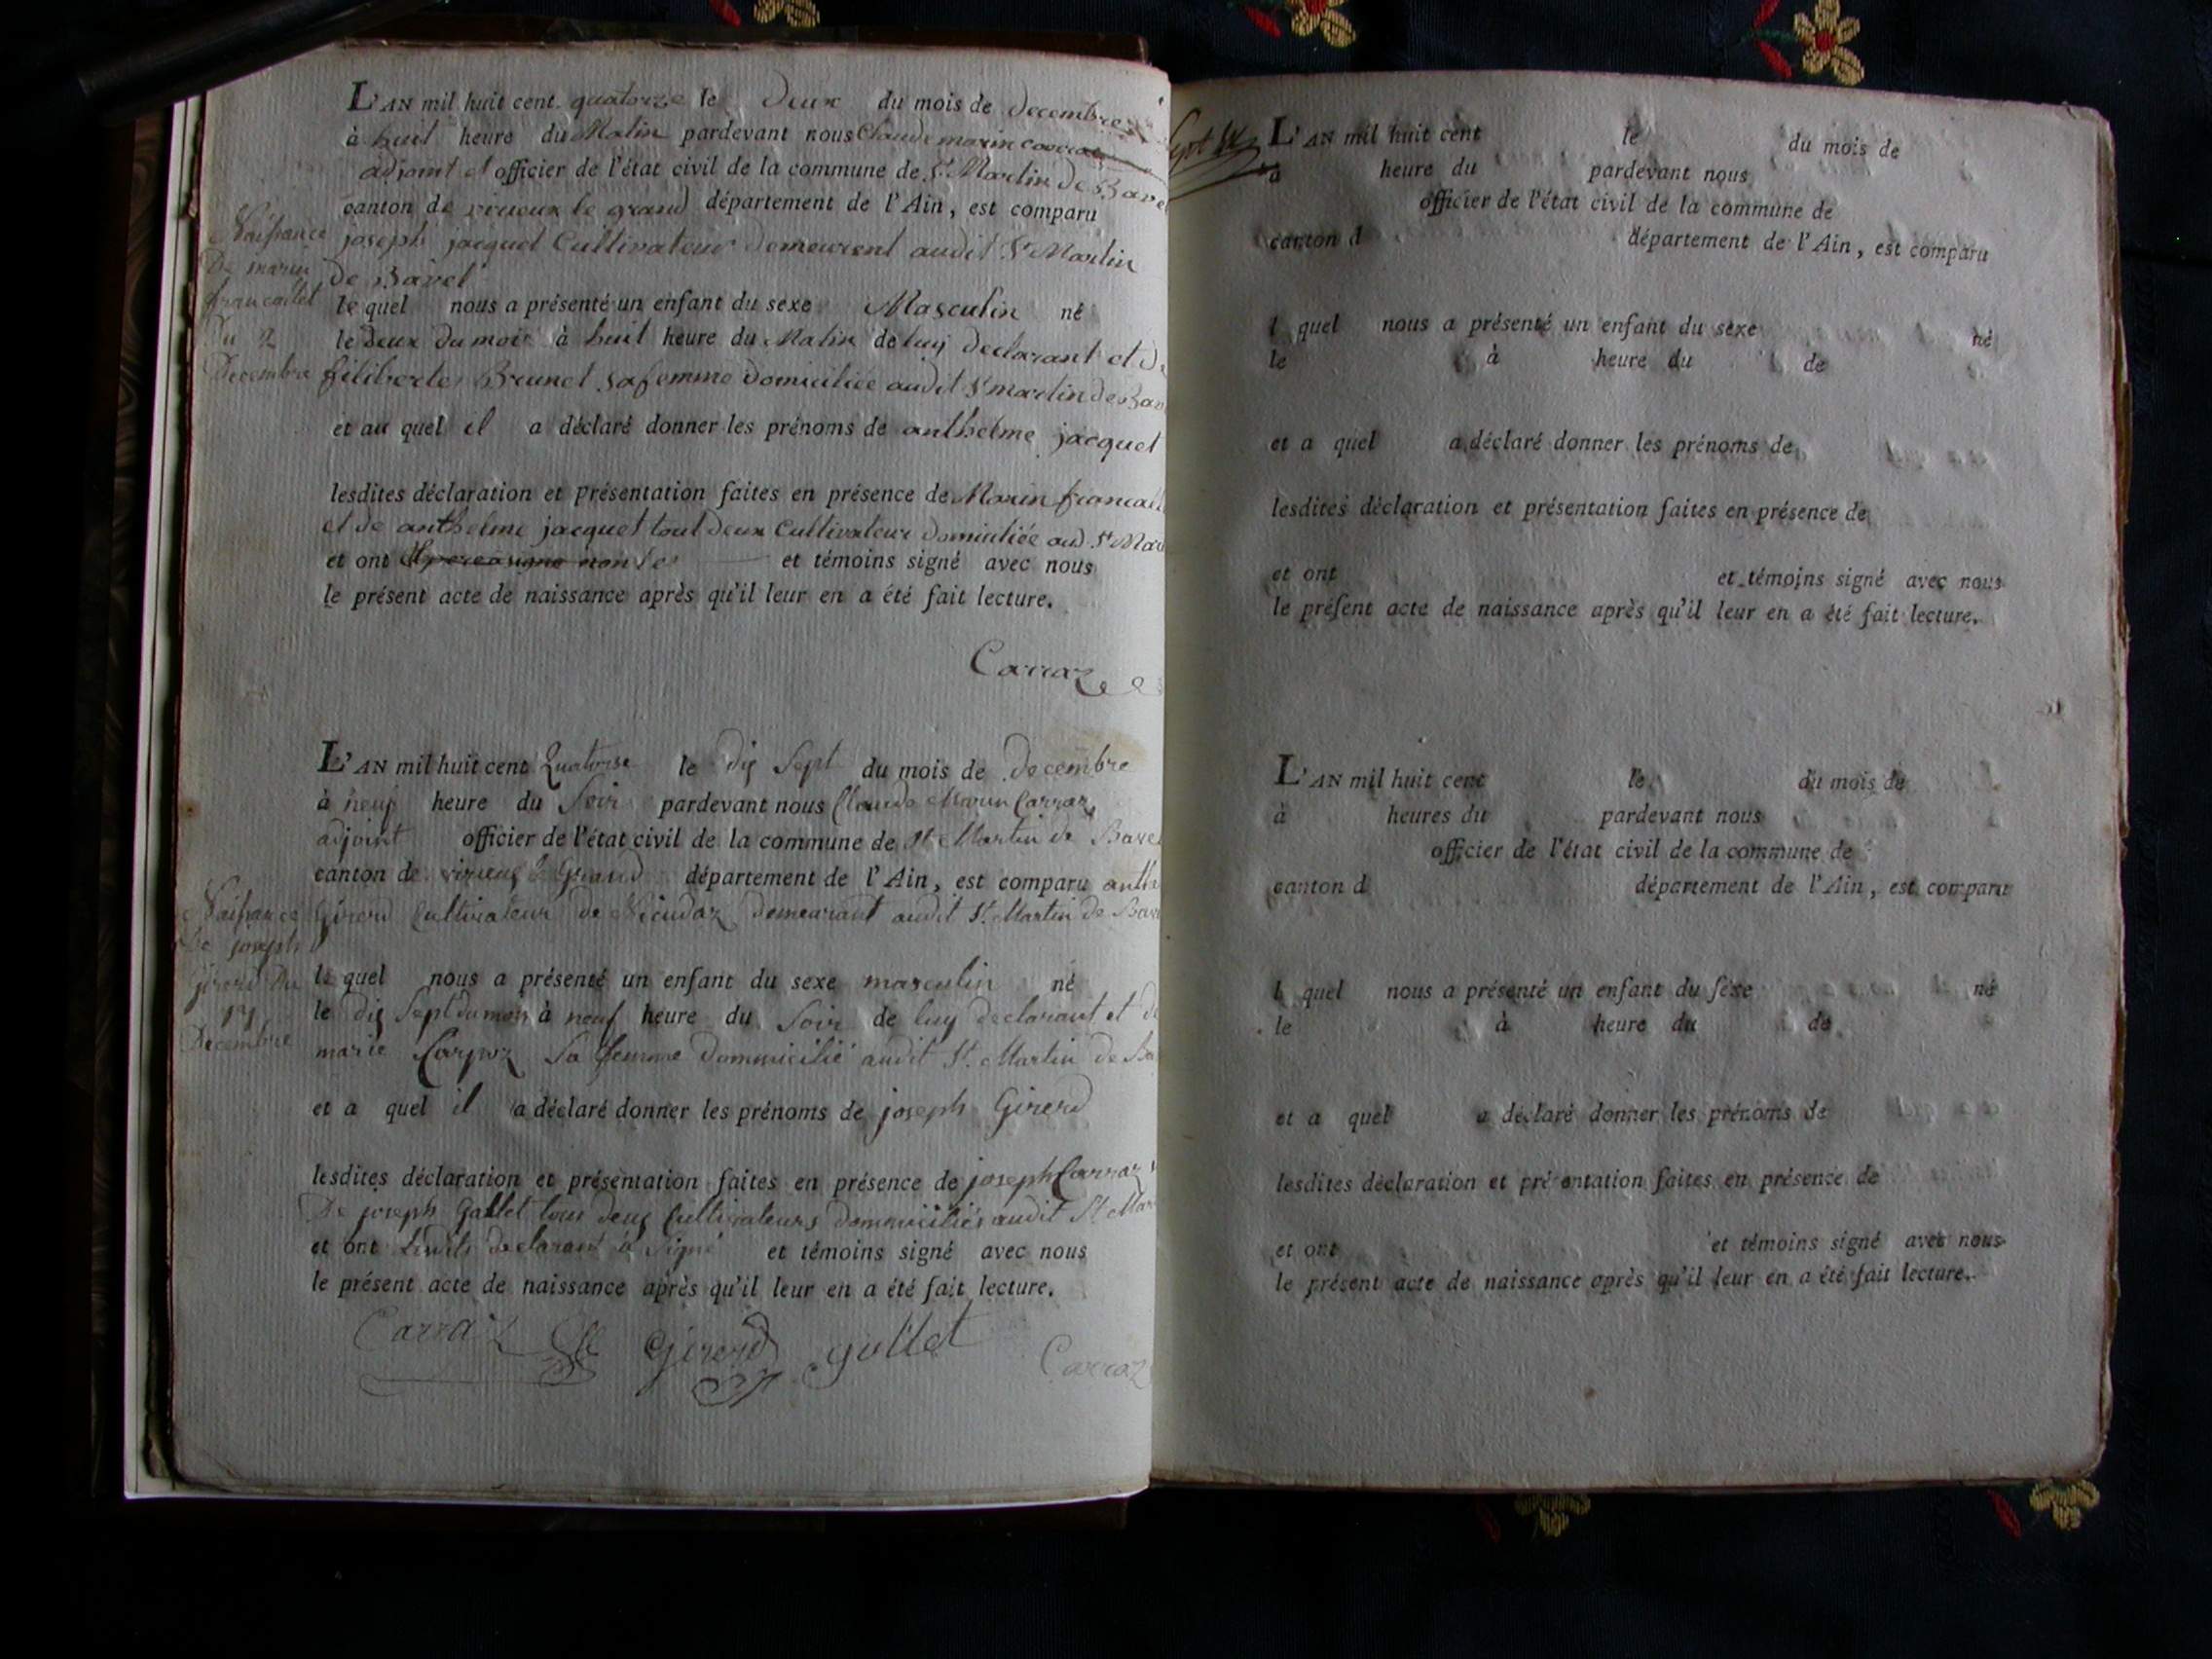 L'AN mil huit cent quatorze le deux du mois de decembre
à huit heure du Matin pardevant nous Claude marin carraz
adjoint et officier de l'état civil de la commune de St Martin de Bavel
canton de virieux le grand département de l'Ain, est comparu
joseph jacquet Cultivateur demeurent audit St Martin
de Bavel
Naissance
De marin
francaillet
Du 2
Decembre
le quel nous a présenté un enfant du sexe Masculin né
le deux du mois à huit heure du Matin de luy declarant et de
filiberte Brunet sa femme domiciliée audit St martin de Bav
et au quel il a déclaré donner les prénoms de anthelme jacquet
lesdites déclaration et présentation faites en présence de Marin francail
et de anthelme jacquet tout deux Cultivateur domiciliée aud. St Mar
et ont et témoins signé avec nous
le présent acte de naissance après qu'il leur en a été fait lecture.
Carraz
L'AN mil huit cent Quatorse le dix Sept du mois de decembre
à neuf heure du Soir pardevant nous Claude Marin Carraz
adjoint officier de l'état civil de la commune de St Martin de Bavel
canton de virieux le Grand département de l'Ain, est comparu anth
Girerd Cultivateur de demeurant audit St. Martin de Bave
Naissance
De joseph
girerd Du
17
Decembre
le quel nous a présenté un enfant du sexe masculin né
le dix Sept du mois à neuf heure du Soir de luy declarant et de
marie Sa femme dommicilié audit St. Martin de Ba
et a quel il a déclaré donner les prénoms de joseph Girerd
lesdites déclaration et présentation faites en présence de joseph Carraz
De joseph Gallet tous deux Cultivateurs dommiciliés audit St Mar
et ont declarant a Signé et témoins signé avec nous
le présent acte de naissance après qu'il leur en a été fait lecture.
Carraz Girerd gullet Carraz
L'AN mil huit cent le du mois de
à heure du pardevant nous
officier de l'état civil de la commune de
canton d département de l'Ain, est comparu
l quel nous a présenté un enfant du sexe né
le à heure du de
et a quel a déclaré donner les prénoms de
lesdites déclaration et présentation faites en présence de
et ont et témoins signé avec nous
le préſent acte de naissance après qu'il leur en a été fait lecture.
L'AN mil huit cent le du mois de
à heures du pardevant nous
officier de l'état civil de la commune de
canton d département de l'Ain, est comparu
l quel nous a présenté un enfant du ſexe né
le à heure du de
et a quel a déclaré donner les prénoms de
lesdites déclaration et présentation faites en présence de
et ont et témoins signé avec nous
le présent acte de naissance après qu'il leur en a été fait lecture.